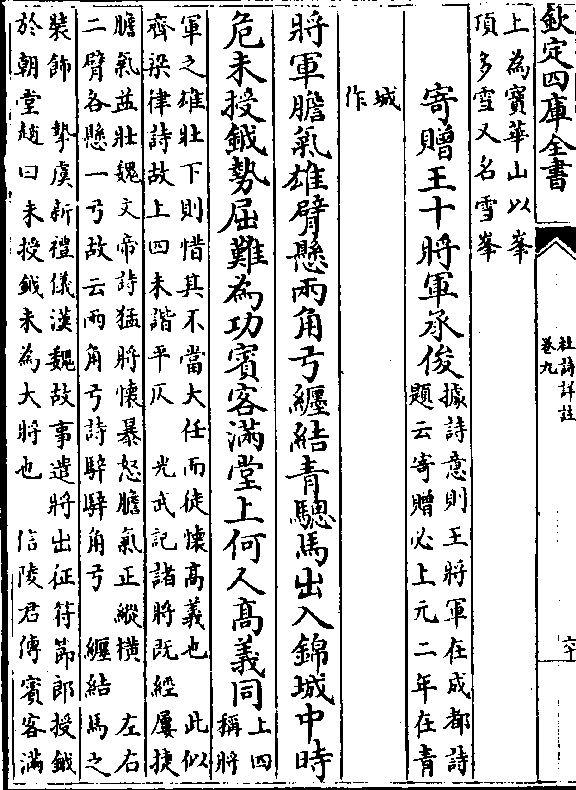 欽定四庫全書
上為寶華山以峯
項多雪又名雪峯
寄贈王十將軍承俊
據詩意則王將軍在成都詩
題云寄贈必上元二年在青
城
作
將軍膽氣雄臂懸兩角弓纏結青驄馬出入錦城中時
危未授鉞勢屈難為功賓客滿堂上何人高義同
上四
稱將
軍之雄壯下則惜其不當大任而徒懷高義也 此似
齊梁律詩故上四未諧平仄 光武記諸將既經屢捷
膽氣益壯魏文帝詩猛將懷暴怒膽氣正縱橫 左右
二臂各懸一弓故云兩角弓詩騂騂角弓 纏結馬之
裝飾 摯虞新禮儀漢魏故事遣將出征符節郎授鉞
於朝堂趙曰未授鉞未為大將也 信陵君傳賓客滿
杜詩詳註
卷九
六十